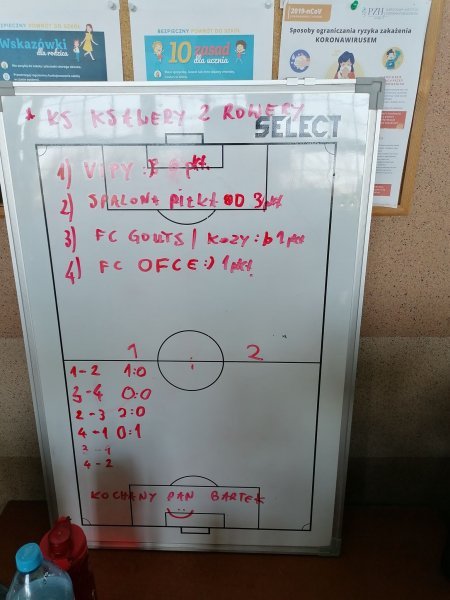 BEZPIECZNY POWRÓT DO SZKOŁY
Wskazówki
dla rodzica
BEZPIECZNY POWRÓT DO SZKOŁY
10 zasad
dla ucznia
2019-nCoV
PZH
Sposoby ograniczania ryzyka zakażenia
KORONAWIRUSEM
* KS KSEWERY 2 ROWERY
SELECT
1) VIPY : pkt
2) SPALONA PIŁKA OD 3 pkt
3) FC GOUTS / KOZY : b 1 pkt
4) FC OFCE :) 1 pkt
1 2
1-2 1:0
3-4 0:0
2-3 2:0
4-1 0:1
4-2
KOCHANY PAN BARTEK